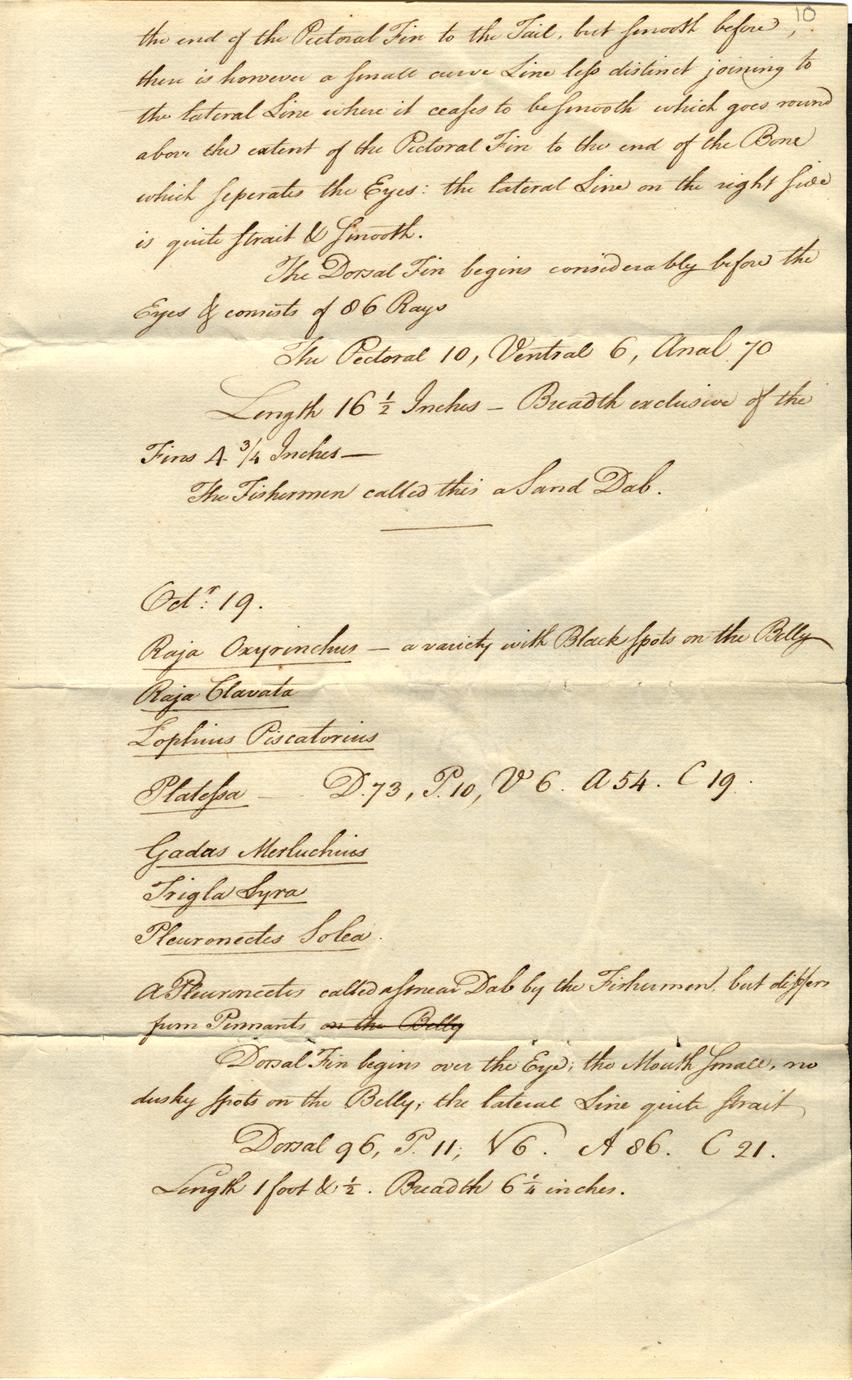 10
the end of the Pectoral Fin to the Tail, but smooth before,
there is however a small curve Line less distinct joining to
the lateral Line where it ceases to be smooth which goes round
above the extent of the Pectoral Fin to the end of the Bone
which seperates the Eyes: the lateral Line on the right side
is quite strait & smooth.
The Dorsal Fin begins considerably before the
Eyes & consists of 86 Rays
The Pectoral 10, Ventral 6, Anal 70
Length 16 ½ Inches – Breadth exclusive of the
Fins 4 ¾ Inches —
The Fishermen called this a Sand Dab.
Octr. 19.
Raja Oxyrinchus – a variety with Black spots on the Belly
Raja Clavata
Lophius Piscatorius
Platessa – D. 73, P. 10, V 6. A 54. C 19.
Gadas Merluchius
Trigla Lyra
Pleuronectes Solea.
A Pleuronectes called a smear Dab by the Fishermen, but differs
from Pennants on the Belly
Dorsal Fin begins over the Eye; the Mouth small, no
dusky spots on the Belly; the lateral Line quite strait
Dorsal 96, P. 11, V 6. A 86. C 21.
Length 1 foot & ½. Breadth 6 ¼ inches.